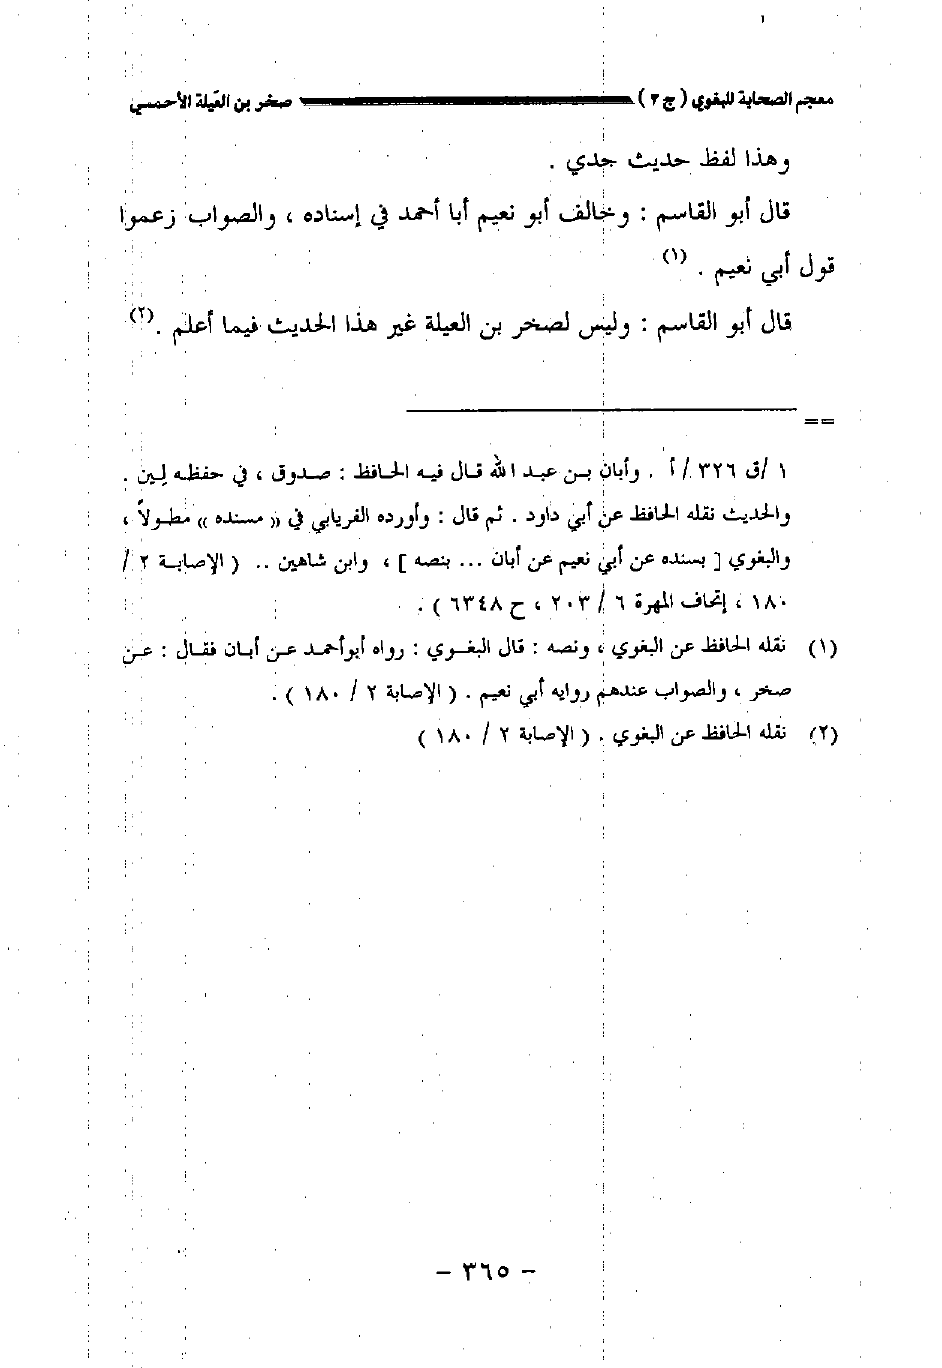 معجم الصحابة للبغوي ( ج ٣ ) صخر بن العَيلة الأحمسي
وهذا لفظ حديث جدي .
قال أبو القاسم : وخالف أبو نعيم أبا أحمد في إسناده ، والصواب زعموا
قول أبي نعيم . (١)
قال أبو القاسم : وليس لصخر بن العيلة غير هذا الحديث فيما أعلم . (٢)
==
١ /ق ٣٢٦ / أ . وأبان بـن عبـد الله قـال فيـه الحافـظ : صـدوق ، في حفظـه لِـين .
والحديث نقله الحافظ عن أبي داود . ثم قال : وأورده الفريابي في « مسنده » مطولاً ،
والبغوي [ بسنده عن أبي نعيم عن أبان ... بنصه ] ، وابن شاهين .. ( الإصابـة ٢ /
١٨٠ ، إتحاف المهرة ٦ / ٢٠٣ ، ح ٦٣٤٨ ) .
(١) نقله الحافظ عن البغوي ، ونصه : قال البغـوي : رواه أبوأحمـد عـن أبـان فقـال : عـن
صخر ، والصواب عندهم روايه أبي نعيم . ( الإصابة ٢ / ١٨٠ ) .
(٢) نقله الحافظ عن البغوي . ( الإصابة ٢ / ١٨٠ )
- ٣٦٥ -